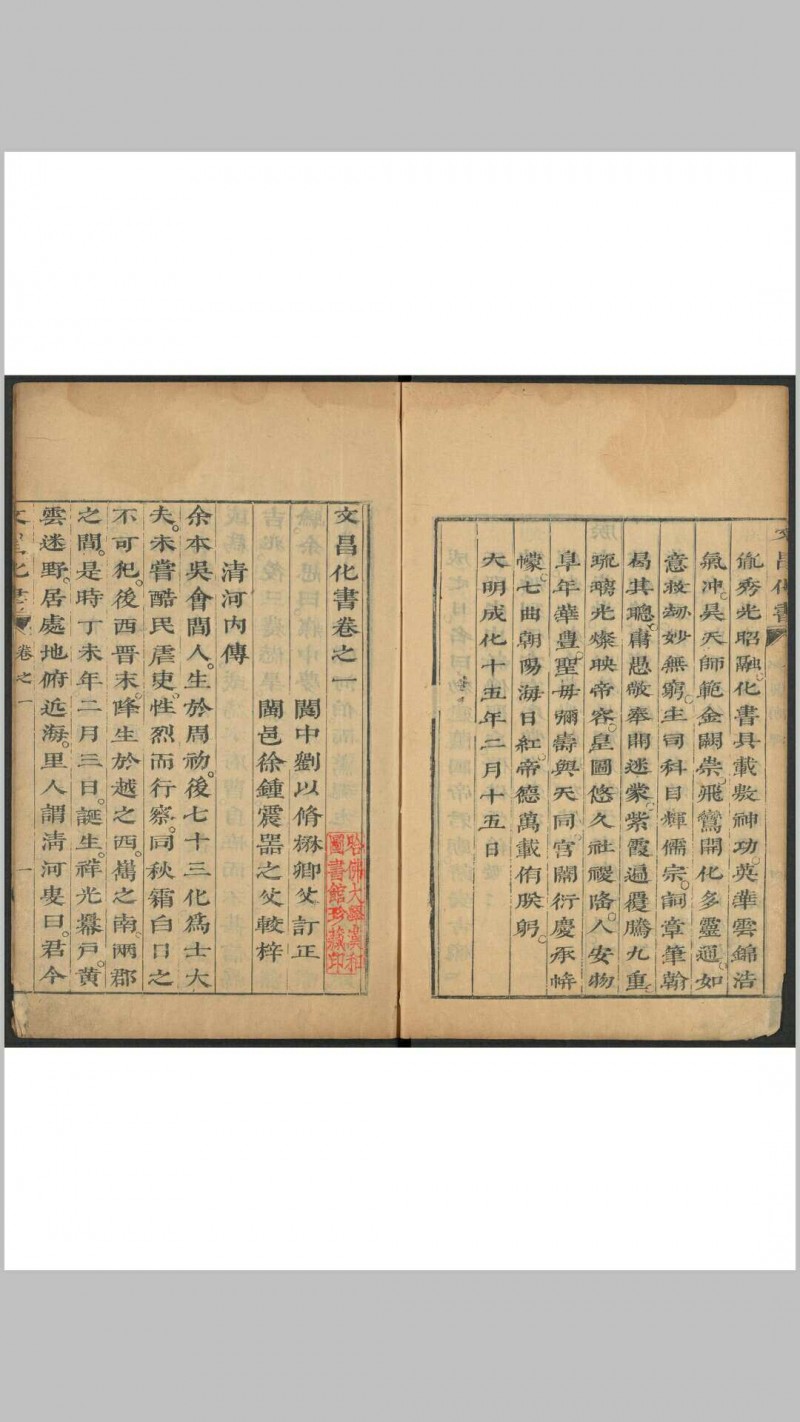 文昌化書
胤秀光昭融化書具載敷神功。英華雲錦浩
氣冲。昊天師範金闕崇。飛鸞開化多靈通。如
意救劫妙無窮。主司科目輝儒宗。詞章筆翰
揭其聰。庸愚敬奉開迷蒙。紫霞過覆騰九重。
琉璃光燦映帝容。皇圖悠久社稷隆。人安物
阜年華豊。聖毋彌壽與天同。宮闈衍慶承帡
幪。七曲朝陽海日紅。帝德萬載侑朕躬。
大明成化十五年二月十五日
文昌化書卷之一
閩中劉以脩楙卿父訂正
閩邑徐鍾震器之父較梓
清河内傳
余本吳會間人。生於周初。後七十三化爲士大
夫。未嘗酷民虐吏。性烈而行察。同秋霜白日之
不可犯。後西晋末。降生於越之西。巂之南。兩郡
之間。是時丁未年二月三日。誕生。祥光羃戶。黄
雲迷野。居處地俯近海。里人謂清河叟曰。君今
文昌化書
卷之一
一
哈佛大學漢和
圖書館珍藏印